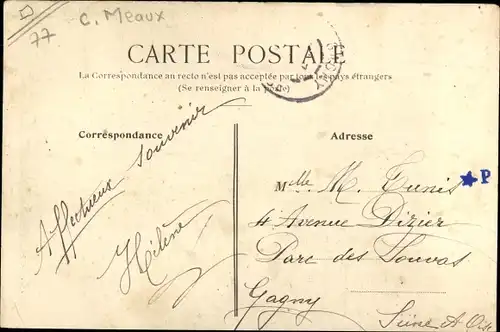 C. Meaux
77
CARTE POSTALE
La Correspondance au recto n'est pas acceptée par tous les pays étrangers
(Se renseigner à la poste)
Correspondance
Adresse
Affectueux souvenir
Hélène
Mlle M. Tunis
P
4 Avenue Dizier
Parc des
Gagny
Seine & Oise